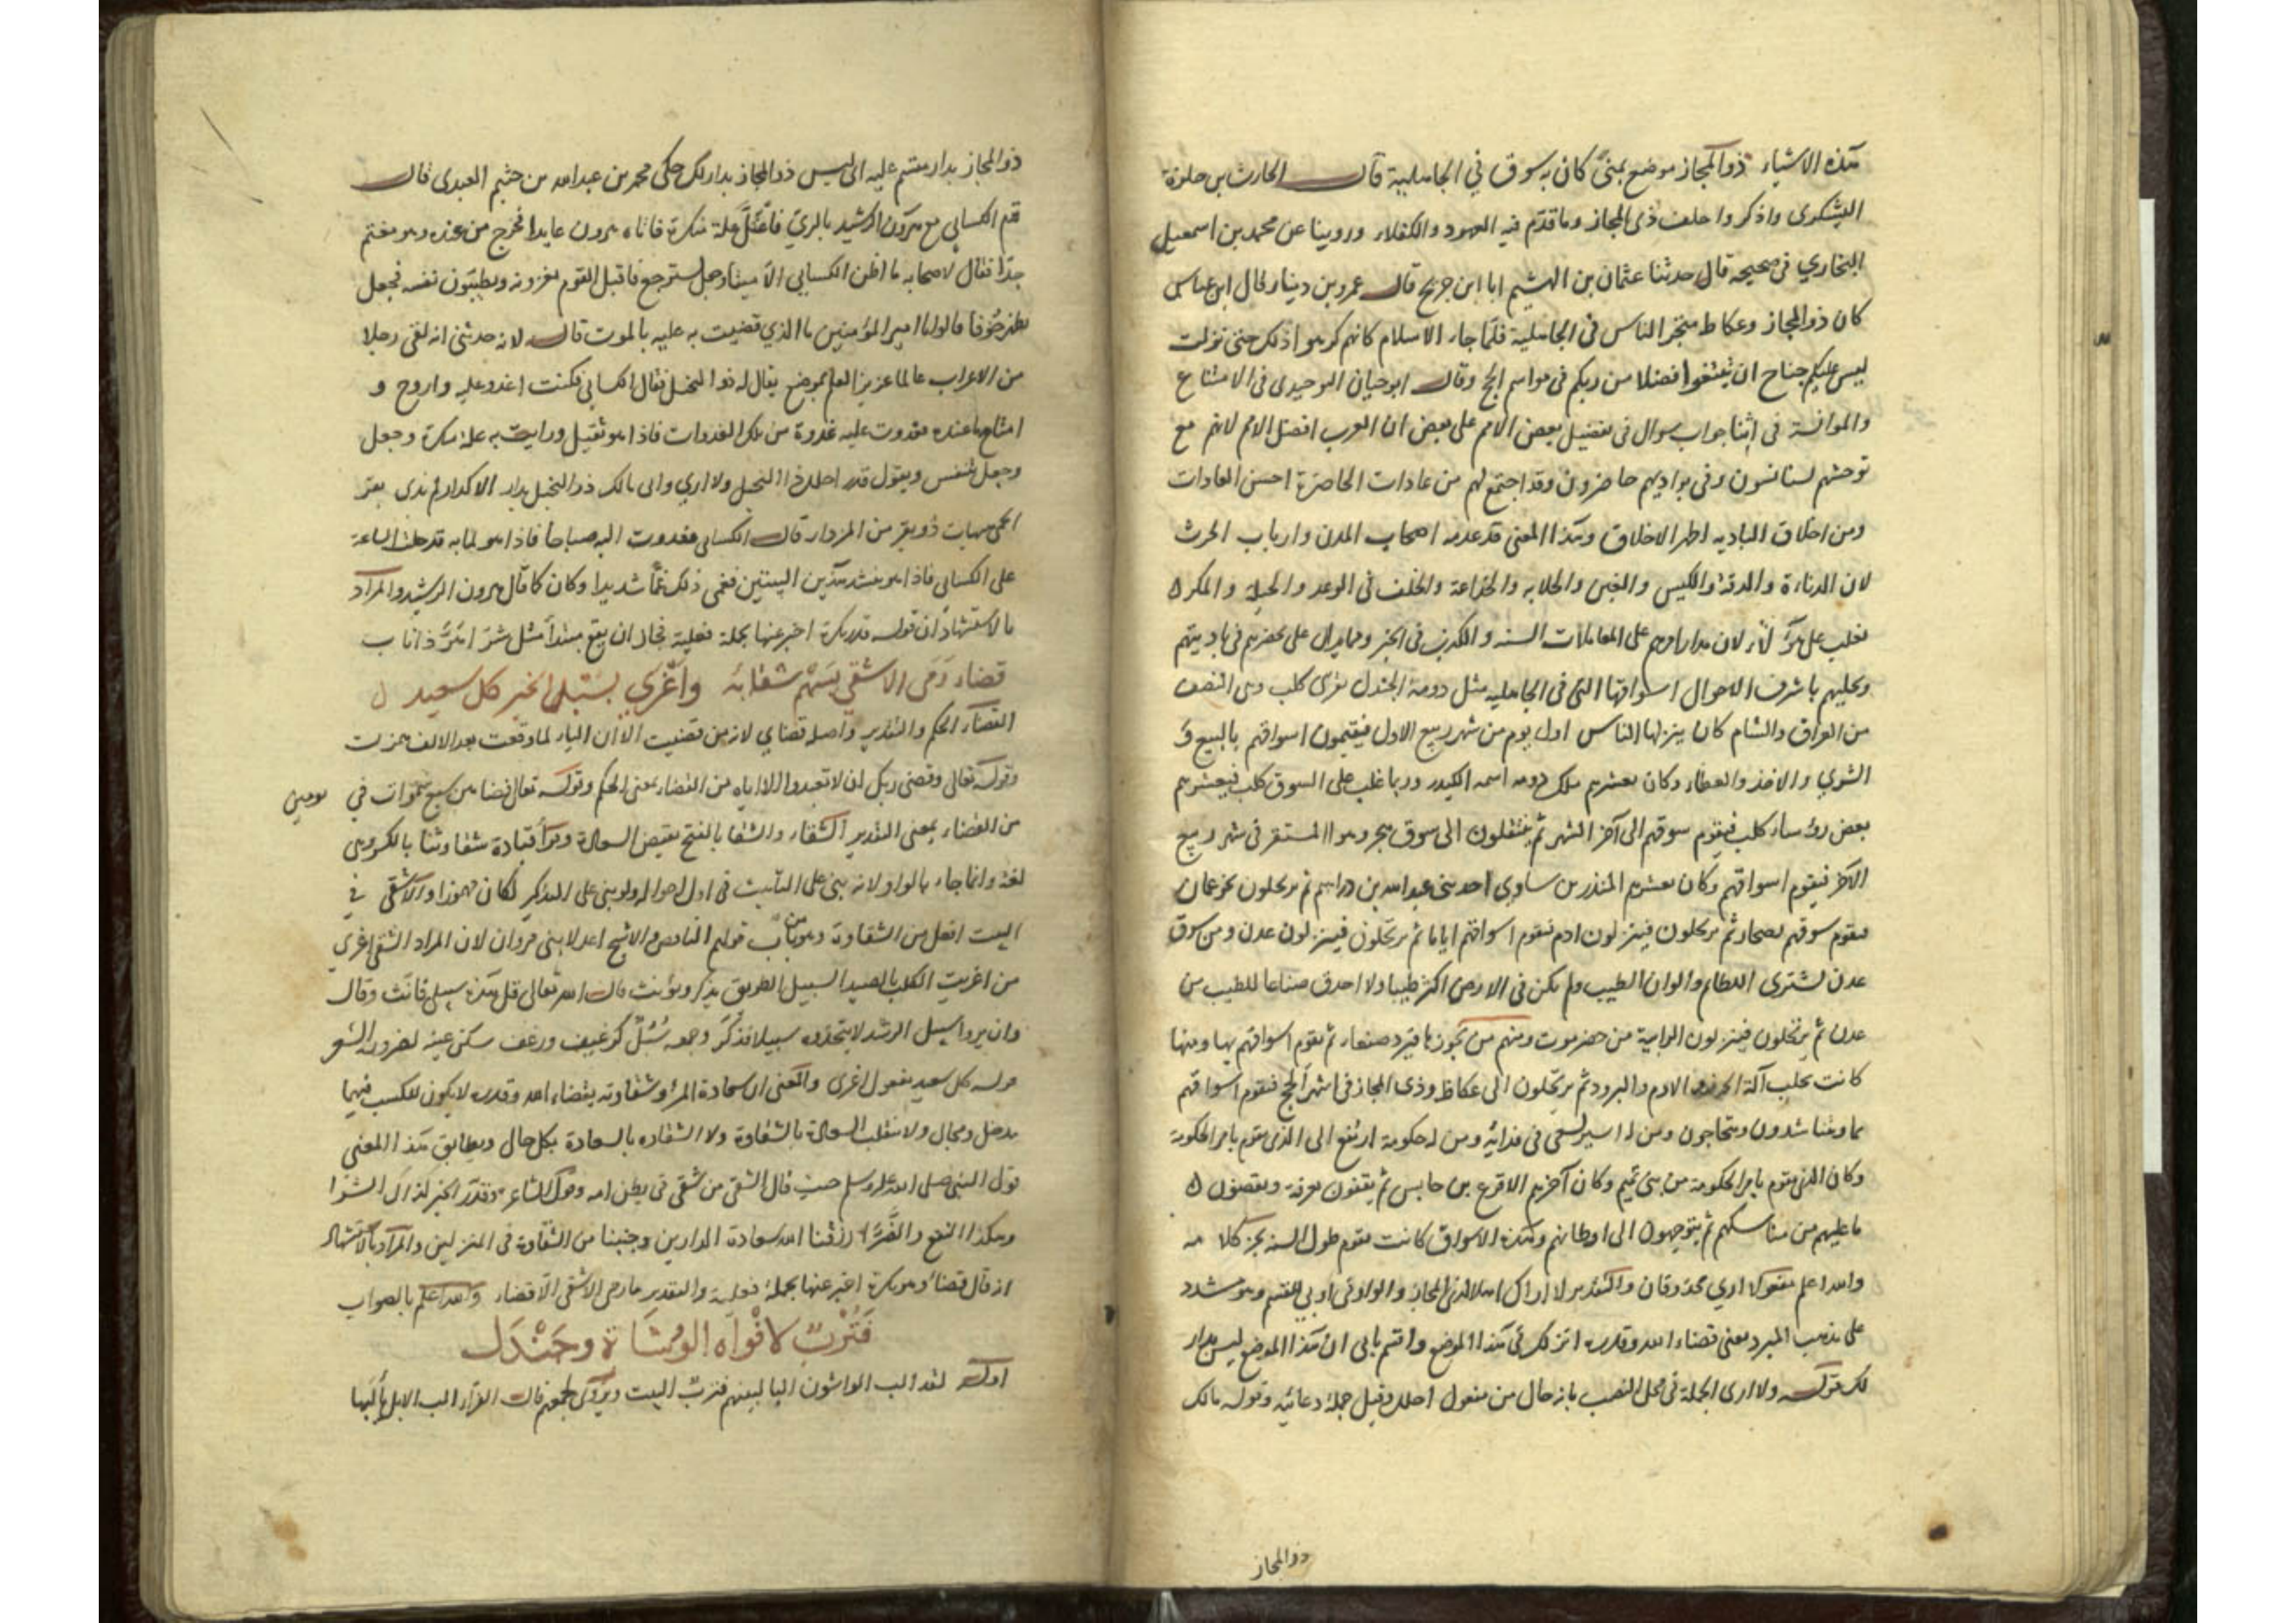 هذه الاشياء ذو المجاز موضع بمنى كان به سوق في الجاهلية قال الحارث بن حلزة
اليشكرى واذكروا حلف ذى المجاز وما قدم فيه العهود والكفلاء وروينا عن محمد بن اسمعيل
البخاري فى صحيحه قال حدثنا عثمان بن الهيثم ابا ابن جريج قال عمرو بن دينار قال ابن عباس
كان ذو المجاز وعكاظ متجر الناس فى الجاهلية فلما جاء الاسلام كانهم كرهوا ذلك حتى نزلت
ليس عليكم جناح ان تبتغوا فضلا من ربكم فى مواسم الحج وقال ابو حيان التوحيدى فى الامتاع
والموانسة فى اثنا جواب سوال فى تفضيل بعض الامم على بعض ان العرب افضل الامم لانهم مع
توحشهم مستانسون وفى بواديهم حاضرون وقد اجتمع لهم من عادات الحاضرة احسن العادات
ومن اخلاق البادية اطهر الاخلاق وهذا المعنى قد عدمه اصحاب المدن وارباب الحرث
لان الدناءة والدقة والكيس والغبن والخلابه والخداعة والخلف فى الوعد والحيلة والمكر
تغلب على هؤلاء لان مدار امرهم على المعاملات السيئه والكذب فى الخبر ومما يدل على تحضرهم فى باديتهم
وتحليهم باشرف الاحوال اسواقها التى فى الجاهليه مثل دومة الجندل بقرى كلب وهى النصف
من العراق والشام كان ينزلها الناس اول يوم من شهر ربيع الاول فيقيمون اسواقهم بالبيع و
الشرى والاخذ والعطاء وكان يعشرهم ملك دومه اسمه اكيدر وربما غلب على السوق كلب فيعشرهم
بعض رؤساء كلب فيقوم سوقهم الى آخر الشهر ثم ينتقلون الى سوق هجر وهو المستقر فى شهر ربيع
الآخر فيقوم اسواقهم وكان يعشرهم المنذر بن ساوى احد بنى عبد الله بن دارم ثم يرتحلون نحو عمان
فيقوم سوقهم بصحار ثم يرتحلون فينزلون ارم فيقوم اسواقهم اياما ثم يرتحلون فينزلون عدن ومن سوق
عدن تشترى اللطائم والوان الطيب ولم يكن فى الارض اكثر طيبا ولا احذق صناعا للطيب من
عدن ثم يرتحلون فينزلون الرابية من حضرموت ومنهم من يجوزها فيرد صنعاء ثم يقوم اسواقهم بها ومنها
كانت تجلب آلة الخرز والادم والبرود ثم يرتحلون الى عكاظ وذى المجاز فى اشهر الحج فيقوم اسواقهم
بها ويتناشدون ويتحاجون ومن له اسير يسعى فى فدائه ومن له حكومة ارتفع الى الذى يقوم بامر الحكومة
وكان الذى يقوم بامر الحكومة من بنى تميم وكان آخرهم الاقرع بن حابس ثم يقفون بعرفة ويقضون
ما عليهم من مناسكهم ثم يتوجهون الى اوطانهم وهذه الاسواق كانت تقوم طول السنه
والله اعلم مفعولا ارى محذوفان والتقدير لا اراك اهلا لذى المجاز والواو فى وابي للقسم وهو مشدد
على مذهب المبرد يعنى قضاء الله وقدره انزلك فى هذا الموضع واقسم بابى ان هذا الموضع ليس بدار
لك قوله ولا ارى الجملة فى محل النصب بانه حال من مفعول احلك وقيل جملة دعائيه وقوله مالك
ذو المجاز
ذو المجاز بدار مقسم عليه اى ليس ذو المجاز بدار لك حكى محمد بن عبد الله بن خثيم العبدى قال
قدم الكسائي مع هرون الرشيد بالري فاعتل علة منكرة فاتاه هرون عايدا فخرج من عنده وهو مغتم
جدا فقال لاصحابه ما اظن الكسائي الا ميتا وجعل يسترجع فاقبل القوم يعزونه ويطيبون نفسه فجعل
يظهر حزنا قالوا يا امير المؤمنين ما الذي قضيت به عليه بالموت قال لانه حدثنى انه لقى رجلا
من الاعراب عالما غزير العلم بموضع يقال له ذو النخيل فقال الكسائي فكنت اغدو عليه واروح و
امتاح ما عنده فغدوت عليه غدوة من تلك الغدوات فاذا هو ثقيل ورايت به علة منكرة وجعل
وجعل يتنفس ويقول قدر احلك ذا النخيل ولا ارى وابى مالك ذو النخيل بدار الا كداركم بذى بقر
الحمى هيهات ذو بقر من المزدار قال الكسائي فغدوت اليه صباحا فاذا هو لما به قد دخلت الساعة
على الكسائي فاذا هو ينشد هذين البيتين فغمنى ذلك غما شديدا وكان كما قال هرون الرشيد والمراد
بالاستشهاد ان قوله قدر نكرة اخبر عنها بجملة فعلية فجاز ان يقع مبتدأ مثل شر اهر ذا ناب
قضاء رمى الاشقى بسهم شقائه واغرى بسبل الخير كل سعيد
القضاء الحكم والتقدير واصله قضاي لانه من قضيت الا ان الياء لما وقعت بعد الالف همزت
وقوله تعالى وقضى ربك ان لا تعبدوا الا اياه من القضاء بمعنى الحكم وقوله تعالى فقضاهن سبع سموات في يومين
من القضاء بمعنى التقدير الشقاء والشقا بالفتح نقيض السعادة وقرأ قتادة شقاوتنا بالكسر وهى
لغة وانما جاء بالواو لانه بنى على التأنيث فى اول احواله ولو بنى على التذكير لكان مهموزا والاشقى في
البيت افعل من الشقاوة وهو من باب قولهم الناقص والاشج اعدلا بنى مروان لان المراد الشقى اغرى
من اغريت الكلب بالصيد السبيل الطريق يذكر ويؤنث قال الله تعالى قل هذه سبيلى فانث وقال
وان يروا سبيل الرشد لا يتخذوه سبيلا فذكر وجمعه سُبُل كرغيف ورغف سكن عينه لضرورة الشعر
قوله كل سعيد مفعول اغرى والمعنى ان سعادة المرؤ وشقاوته بقضاء الله وقدره لا يكون للكسب فيهما
مدخل ومجال ولا ينقلب السعادة بالشقاوة ولا الشقاوه بالسعادة بكل حال ويطابق هذا المعنى
قول النبى صلى الله عليه وسلم حيث قال الشقى من شقى فى بطن امه وقول الشاعر وقدر الخير كذاك الشر
وهكذا النفع والضر رزقنا الله سعادة الدارين وجنبنا من الشقاوة فى المنزلين والمراد بالاستشهاد
انه قال قضاء وهو نكرة اخبر عنها بجملة فعلية والتقدير ما رمى الاشقى الا قضاء والله اعلم بالصواب
فترب لافواه الوشاة وجندل
اوله لقد الب الواشون البا لبينهم فترب البيت ويروى لجمعهم قال الفراء الب الابل يألبها